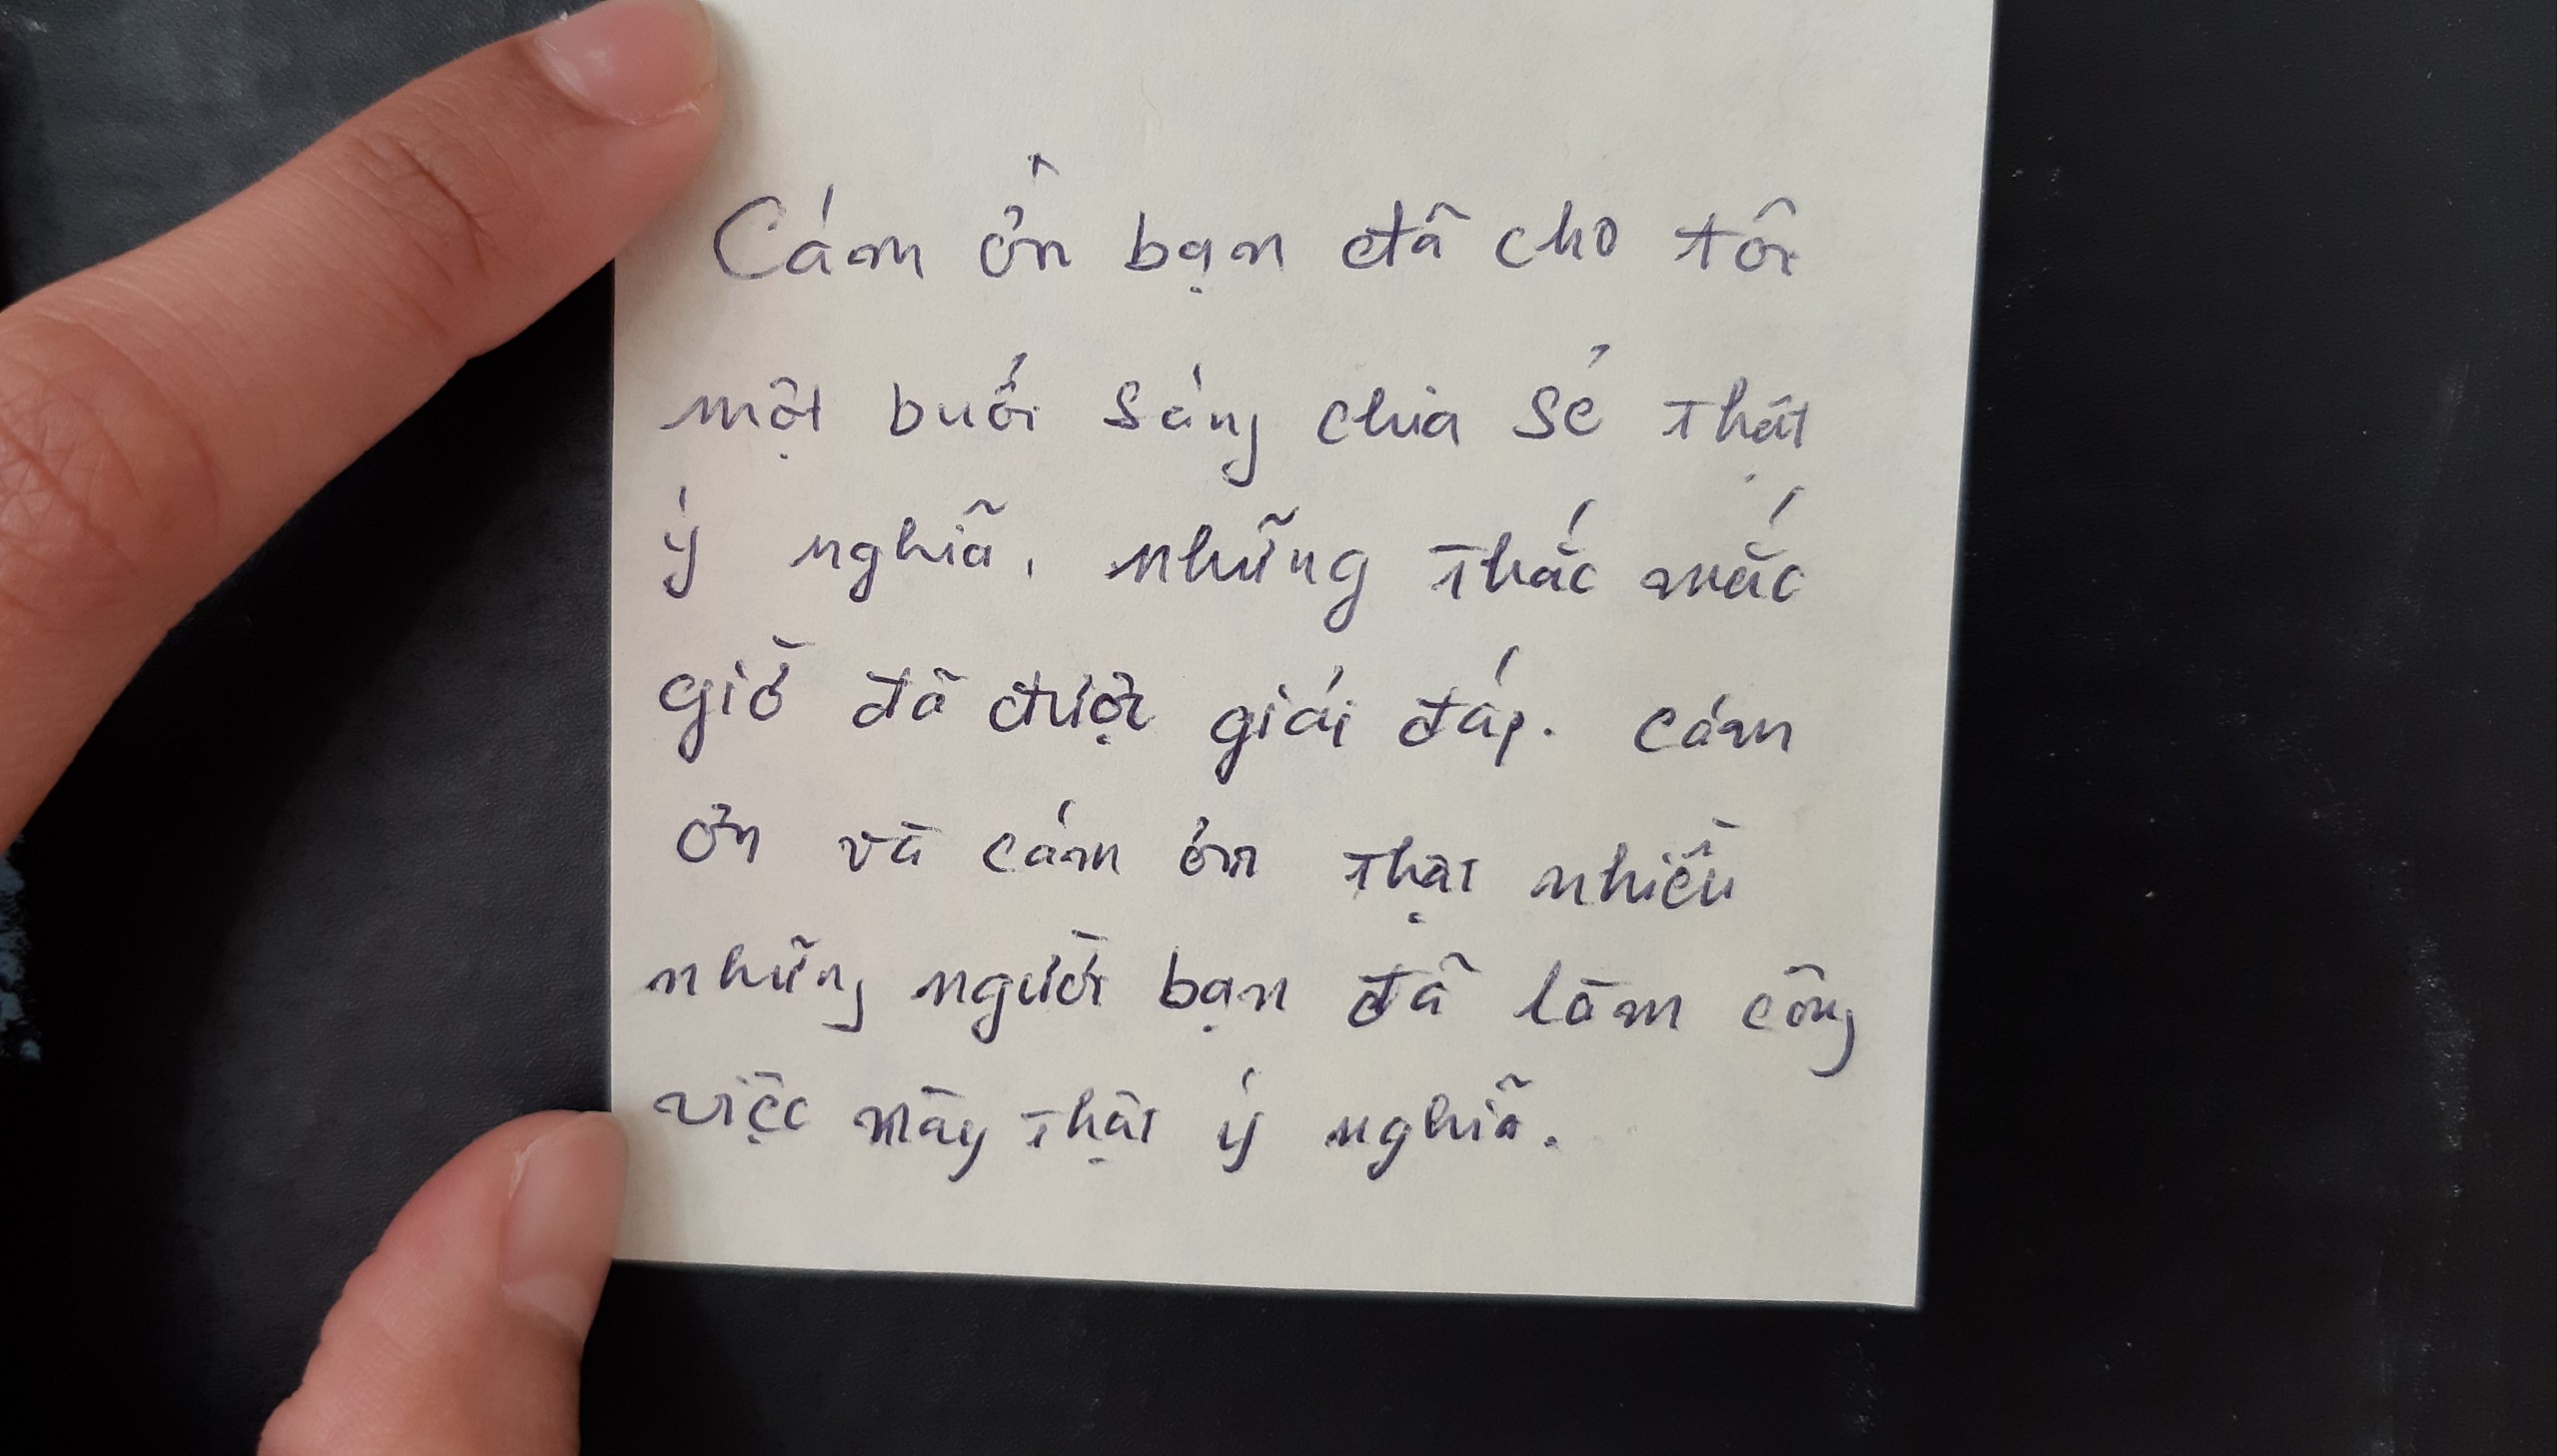 Cám ơn bạn đã cho tôi
một buổi sáng chia sẻ thật
ý nghĩa, những thắc mắc
giờ đã được giải đáp. Cám
ơn và cám ơn thật nhiều
những người bạn đã làm công
việc này thật ý nghĩa.